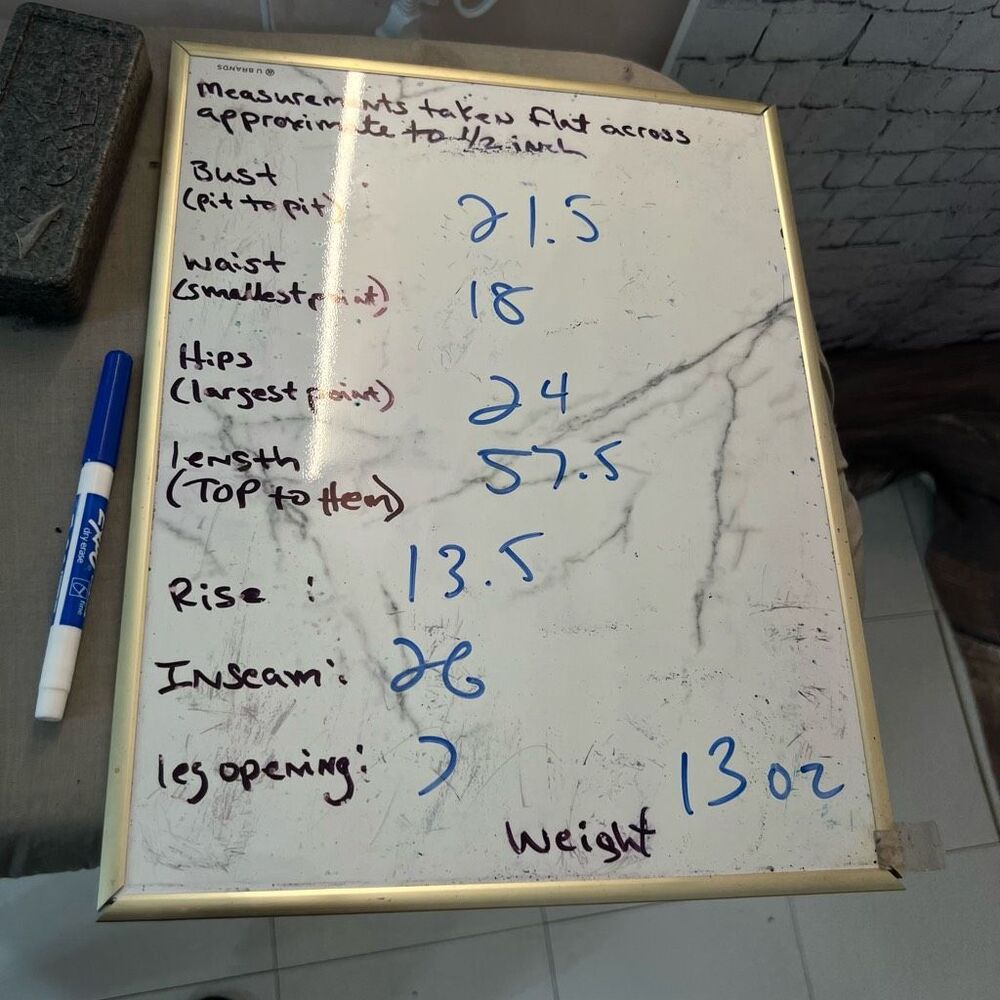 U BRANDS
Measurements taken flat across
approximate to 1/2 inch
Bust
(pit to pit) : 21.5
waist
(smallest point) 18
Hips
(largest point) 24
length
(TOP to Hem) 57.5
Rise : 13.5
Inseam: 26
leg opening: 7
13 oz
Weight
EXPO
dry erase
fine